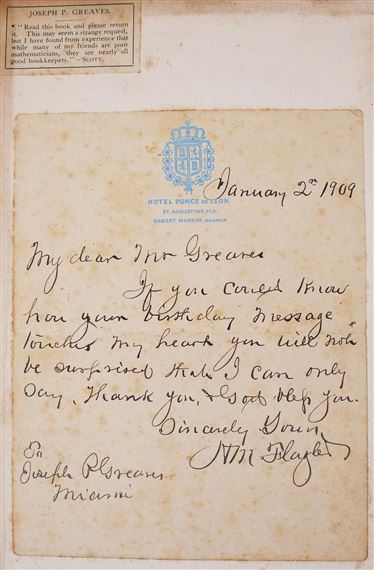 JOSEPH P. GREAVES.
"Read this book and please return
it. This may seem a strange request,
but I have found from experience that
while many of my friends are poor
mathematicians, they are nearly all
good bookkeepers."—SCOTT.
HOTEL PONCE DE LEON
ST. AUGUSTINE, FLA.
ROBERT MURRAY, MANAGER
January 2nd 1909
My dear Mr Greaves
If you could know
how your birthday message
touches my heart you will not
be surprised that I can only
say, Thank you, & God bless you.
Sincerely Yours,
HM Flagler
To
Joseph P Greaves
Miami